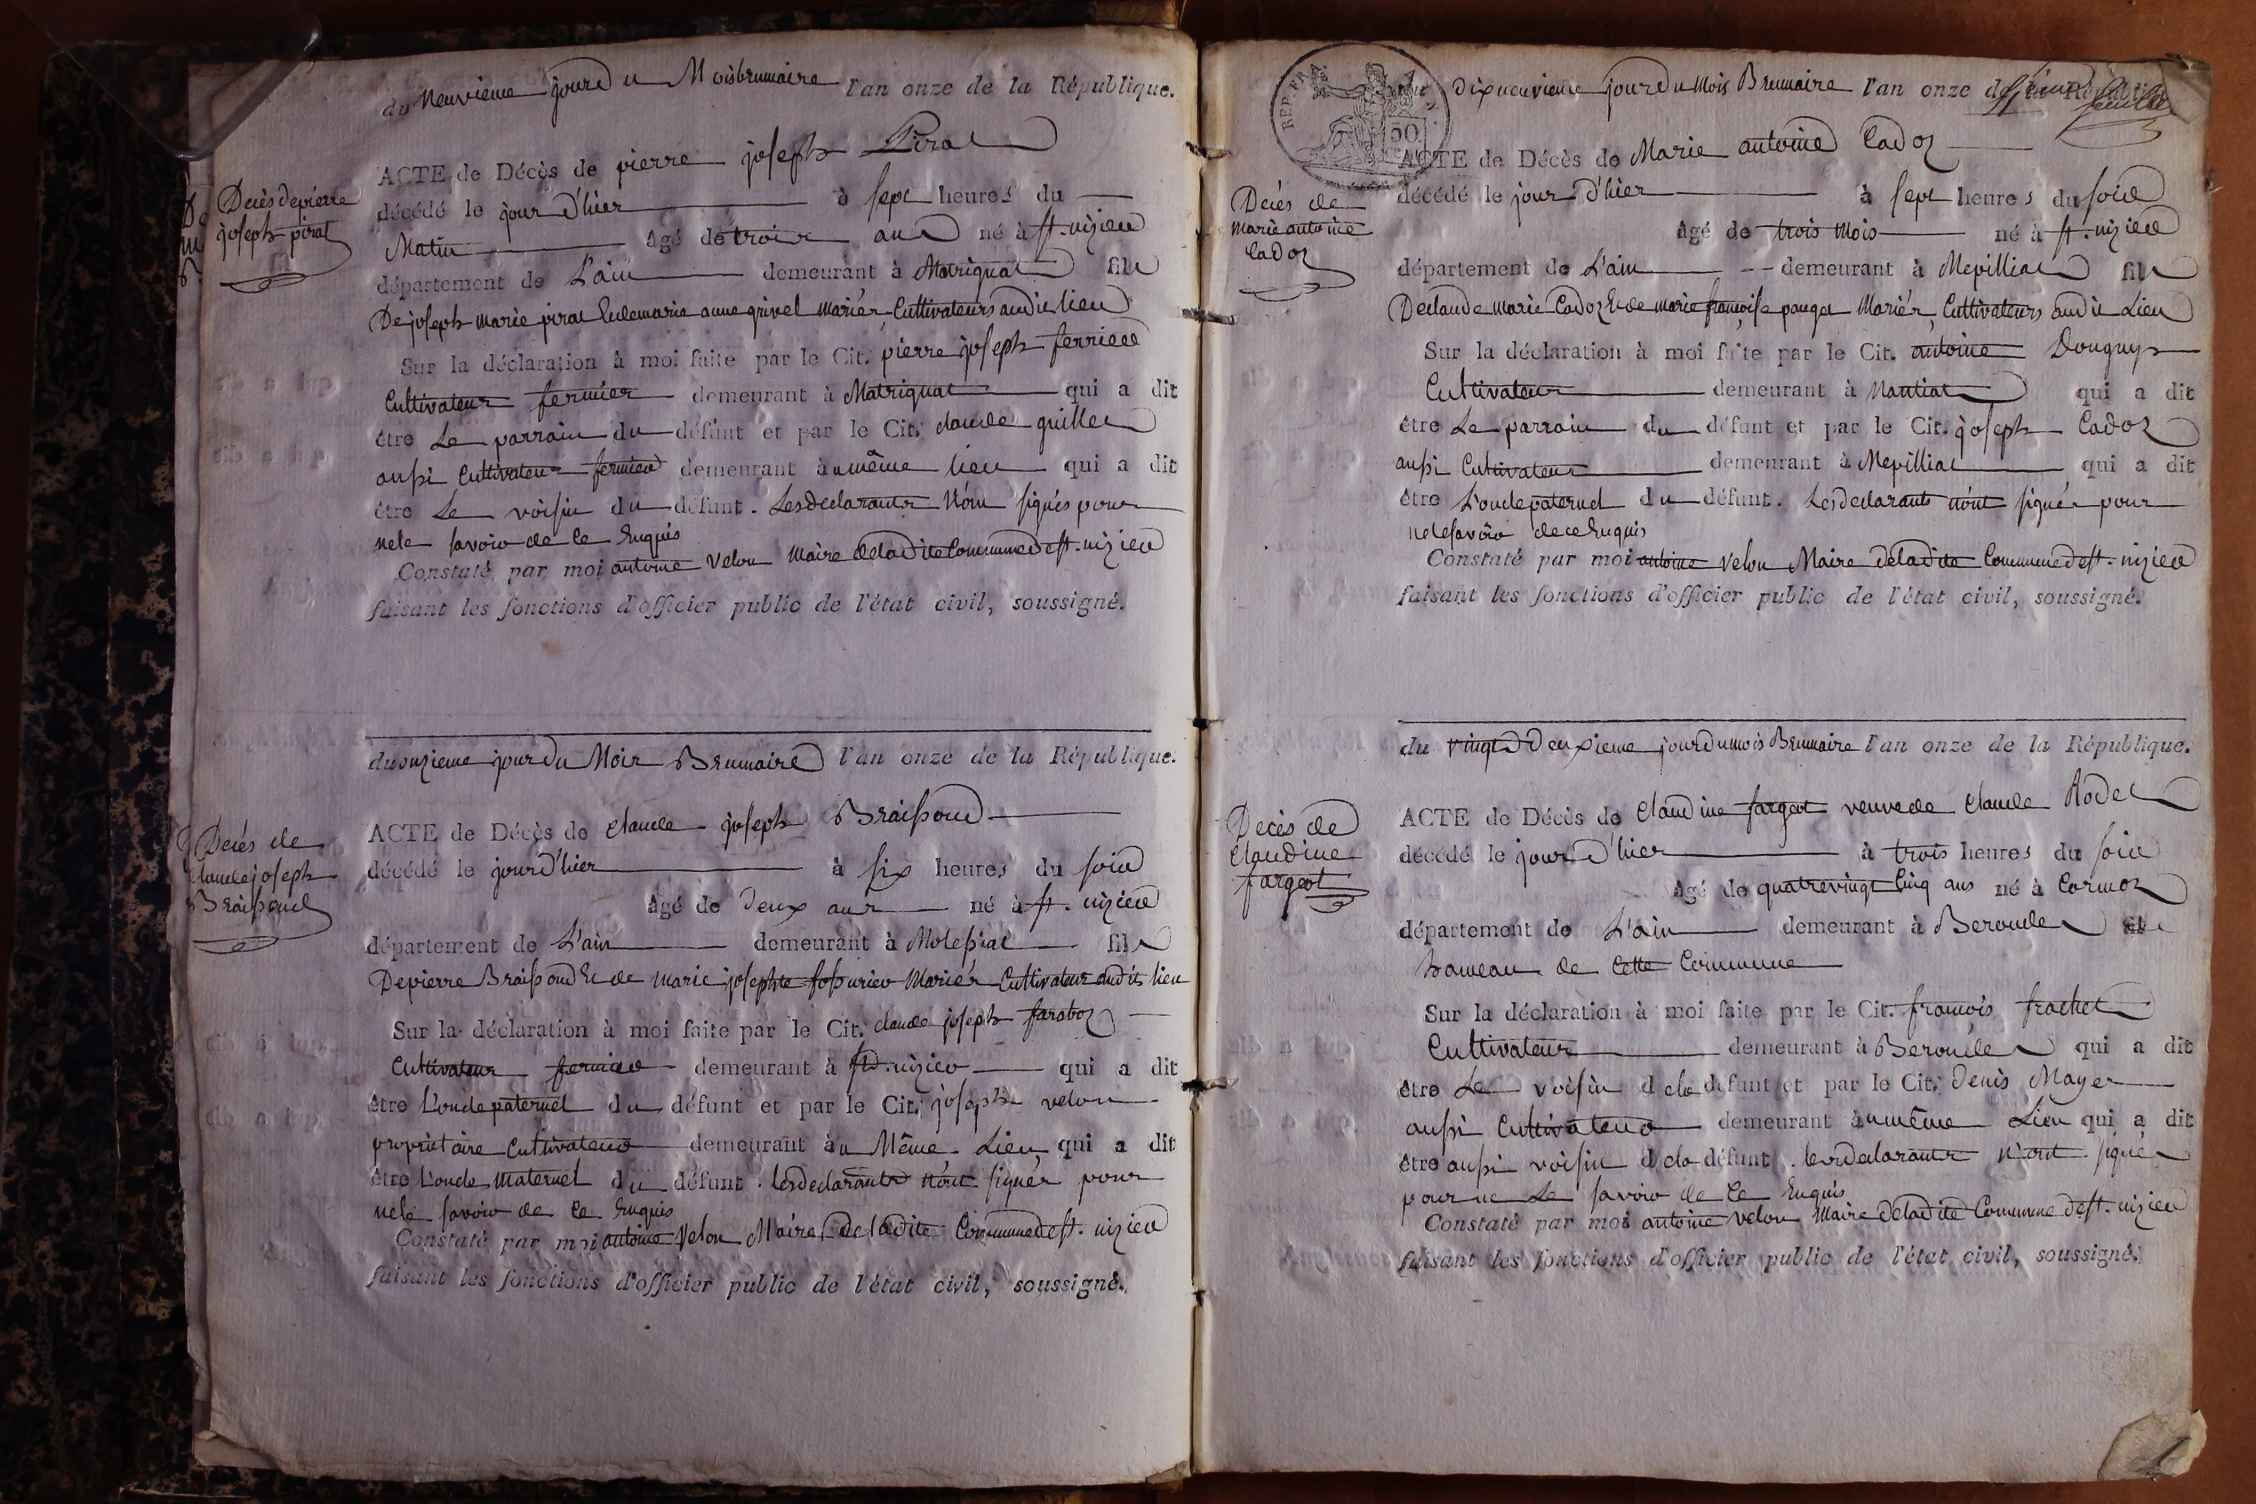 du Neuvieme jour du Mois brumaire l'an onze de la République.
ACTE de Décès de pierre joseph Pirat
Décès de pierre
joseph pirat
décédé le jour d'hier à sept heures du
Matin âgé de trois ans né à st. nizier
département de L'ain demeurant à Matrignat fils
De joseph marie pirat Et de marie anne grivel mariés Cultivateurs audit lieu
Sur la déclaration à moi faite par le Cit. pierre joseph ferrier
Cultivateur fermier demeurant à Matrignat qui a dit
être Le parrain du défunt et par le Cit. claude guillet
aussi Cultivateur fermier demeurant au même lieu qui a dit
être Le voisin du défunt. Les declarants n'ont signés pour
ne le savoir de ce Enquis
Constaté par moi antoine velon Maire de ladite Commune de st. nizier
faisant les fonctions d'officier public de l'état civil, soussigné.
du onzieme jour du Mois Brumaire l'an onze de la République.
ACTE de Décès de Claude joseph Braissoud
Décés de
Claude joseph
Braissoud
décédé le jour d'hier à six heures du soir
âgé de Deux ans né à st. nizier
département de L'ain demeurant à Molessiat fils
De pierre Braissoud Et de marie josephte Mariés Cultivateur audit lieu
Sur la déclaration à moi faite par le Cit. claude joseph faraboz
Cultivateur fermier demeurant à st. nizier qui a dit
être L'oncle paternel du défunt et par le Cit. joseph velon
propriétaire Cultivateur demeurant au Même Lieu qui a dit
être L'oncle Maternel du défunt. les declarants n'ont signés pour
ne le savoir de Ce Enquis
Constaté par moi antoine Velon Maire de ladite Commune de st. nizier
faisant les fonctions d'officier public de l'état civil, soussigné.
REP. FRA.
50
du Dix neuvieme jour du Mois Brumaire l'an onze de la République
feuille
ACTE de Décès de Marie antoine Cadoz
Décés de
marie antoine
Cadoz
décédé le jour d'hier à sept heures du soir
âgé de trois mois né à st. nizier
département de L'ain demeurant à Mepilliat fils
De claude Marie Cadoz Et de marie françoise pauget Mariés Cultivateurs audit Lieu
Sur la déclaration à moi faite par le Cit. antoine Donguy
Cultivateur demeurant à Mantiat qui a dit
être Le parrain du défunt et par le Cit. joseph Cadoz
aussi Cultivateur demeurant à Mepilliat qui a dit
être L'oncle paternel du défunt. Les declarants n'ont signés pour
ne le savoir de ce Enquis
Constaté par moi antoine velon Maire de ladite Commune de st. nizier
faisant les fonctions d'officier public de l'état civil, soussigné.
du vingt Deuxieme jour du mois Brumaire l'an onze de la République.
ACTE de Décès de Claudine fargeot veuve de Claude Rodet
Decès de
Claudine
fargeot
décédé le jour d'hier à trois heures du soir
âgé de quatrevingt Cinq ans né à Cormoz
département de L'ain demeurant à Beroudet fil
hameau de Cette Commune
Sur la déclaration à moi faite par le Cit. françois frachet
Cultivateur demeurant à Beroudet qui a dit
être Le voisin de la défunt et par le Cit. Denis Mayer
aussi Cultivateur demeurant au même Lieu qui a dit
être aussi voisin de la défunt. les declarants n'ont signés
pour ne Le savoir de Ce Enquis
Constaté par moi antoine velon Maire de ladite Commune de st. nizier
faisant les fonctions d'officier public de l'état civil, soussigné.